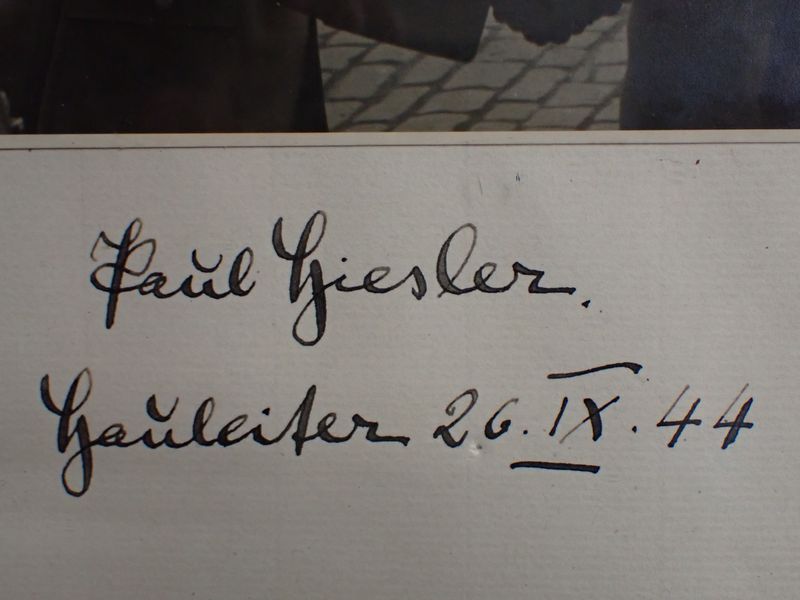 Paul Giesler.
Gauleiter 26.IX.44